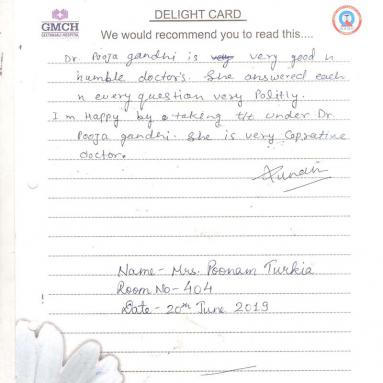 GMCH
GEETANJALI HOSPITAL
DELIGHT CARD
We would recommend you to read this....
Dr. Pooja gandhi is very good n
humble doctor's. She answered each
n every question very Politly.
I m Happy by taking t/t under Dr
Pooja gandhi. She is very Coprative
doctor.
Name - Mrs. Poonam Turkia
Room No - 404
Date - 20th June 2019